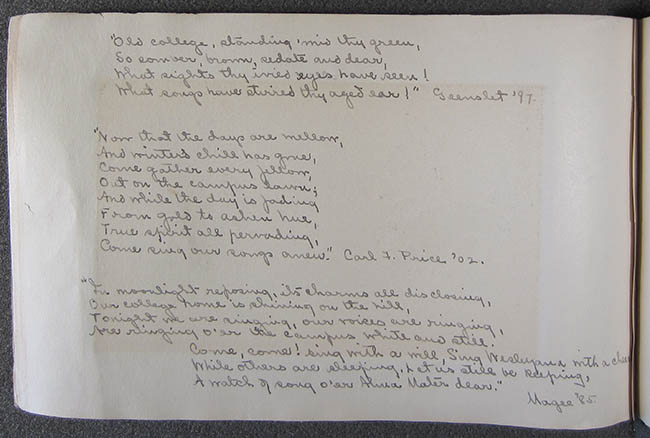 "Old college, standing 'mid thy green,
So somber, brown, sedate and dear,
What sights thy ivied eyes have seen!
What songs have stirred thy aged ear!" Geenslet '97.
"Now that the days are mellow,
And winter's chill has gone,
Come gather every fellow,
Out on the campus lawn;
And while the day is fading
From gold to ashen hue,
True spirit all pervading,
Come sing our songs anew." Carl F. Price '02.
"In moonlight reposing, its charms all disclosing,
Our college home is shining on the hill,
Tonight we are singing, our voices are ringing,
Are ringing o'er the campus white and still.
Come, come! sing with a will, Sing Wesleyana with a cheer
While others are sleeping, let us still be keeping,
A watch of song o'er Alma Mater dear."
Magee '85.